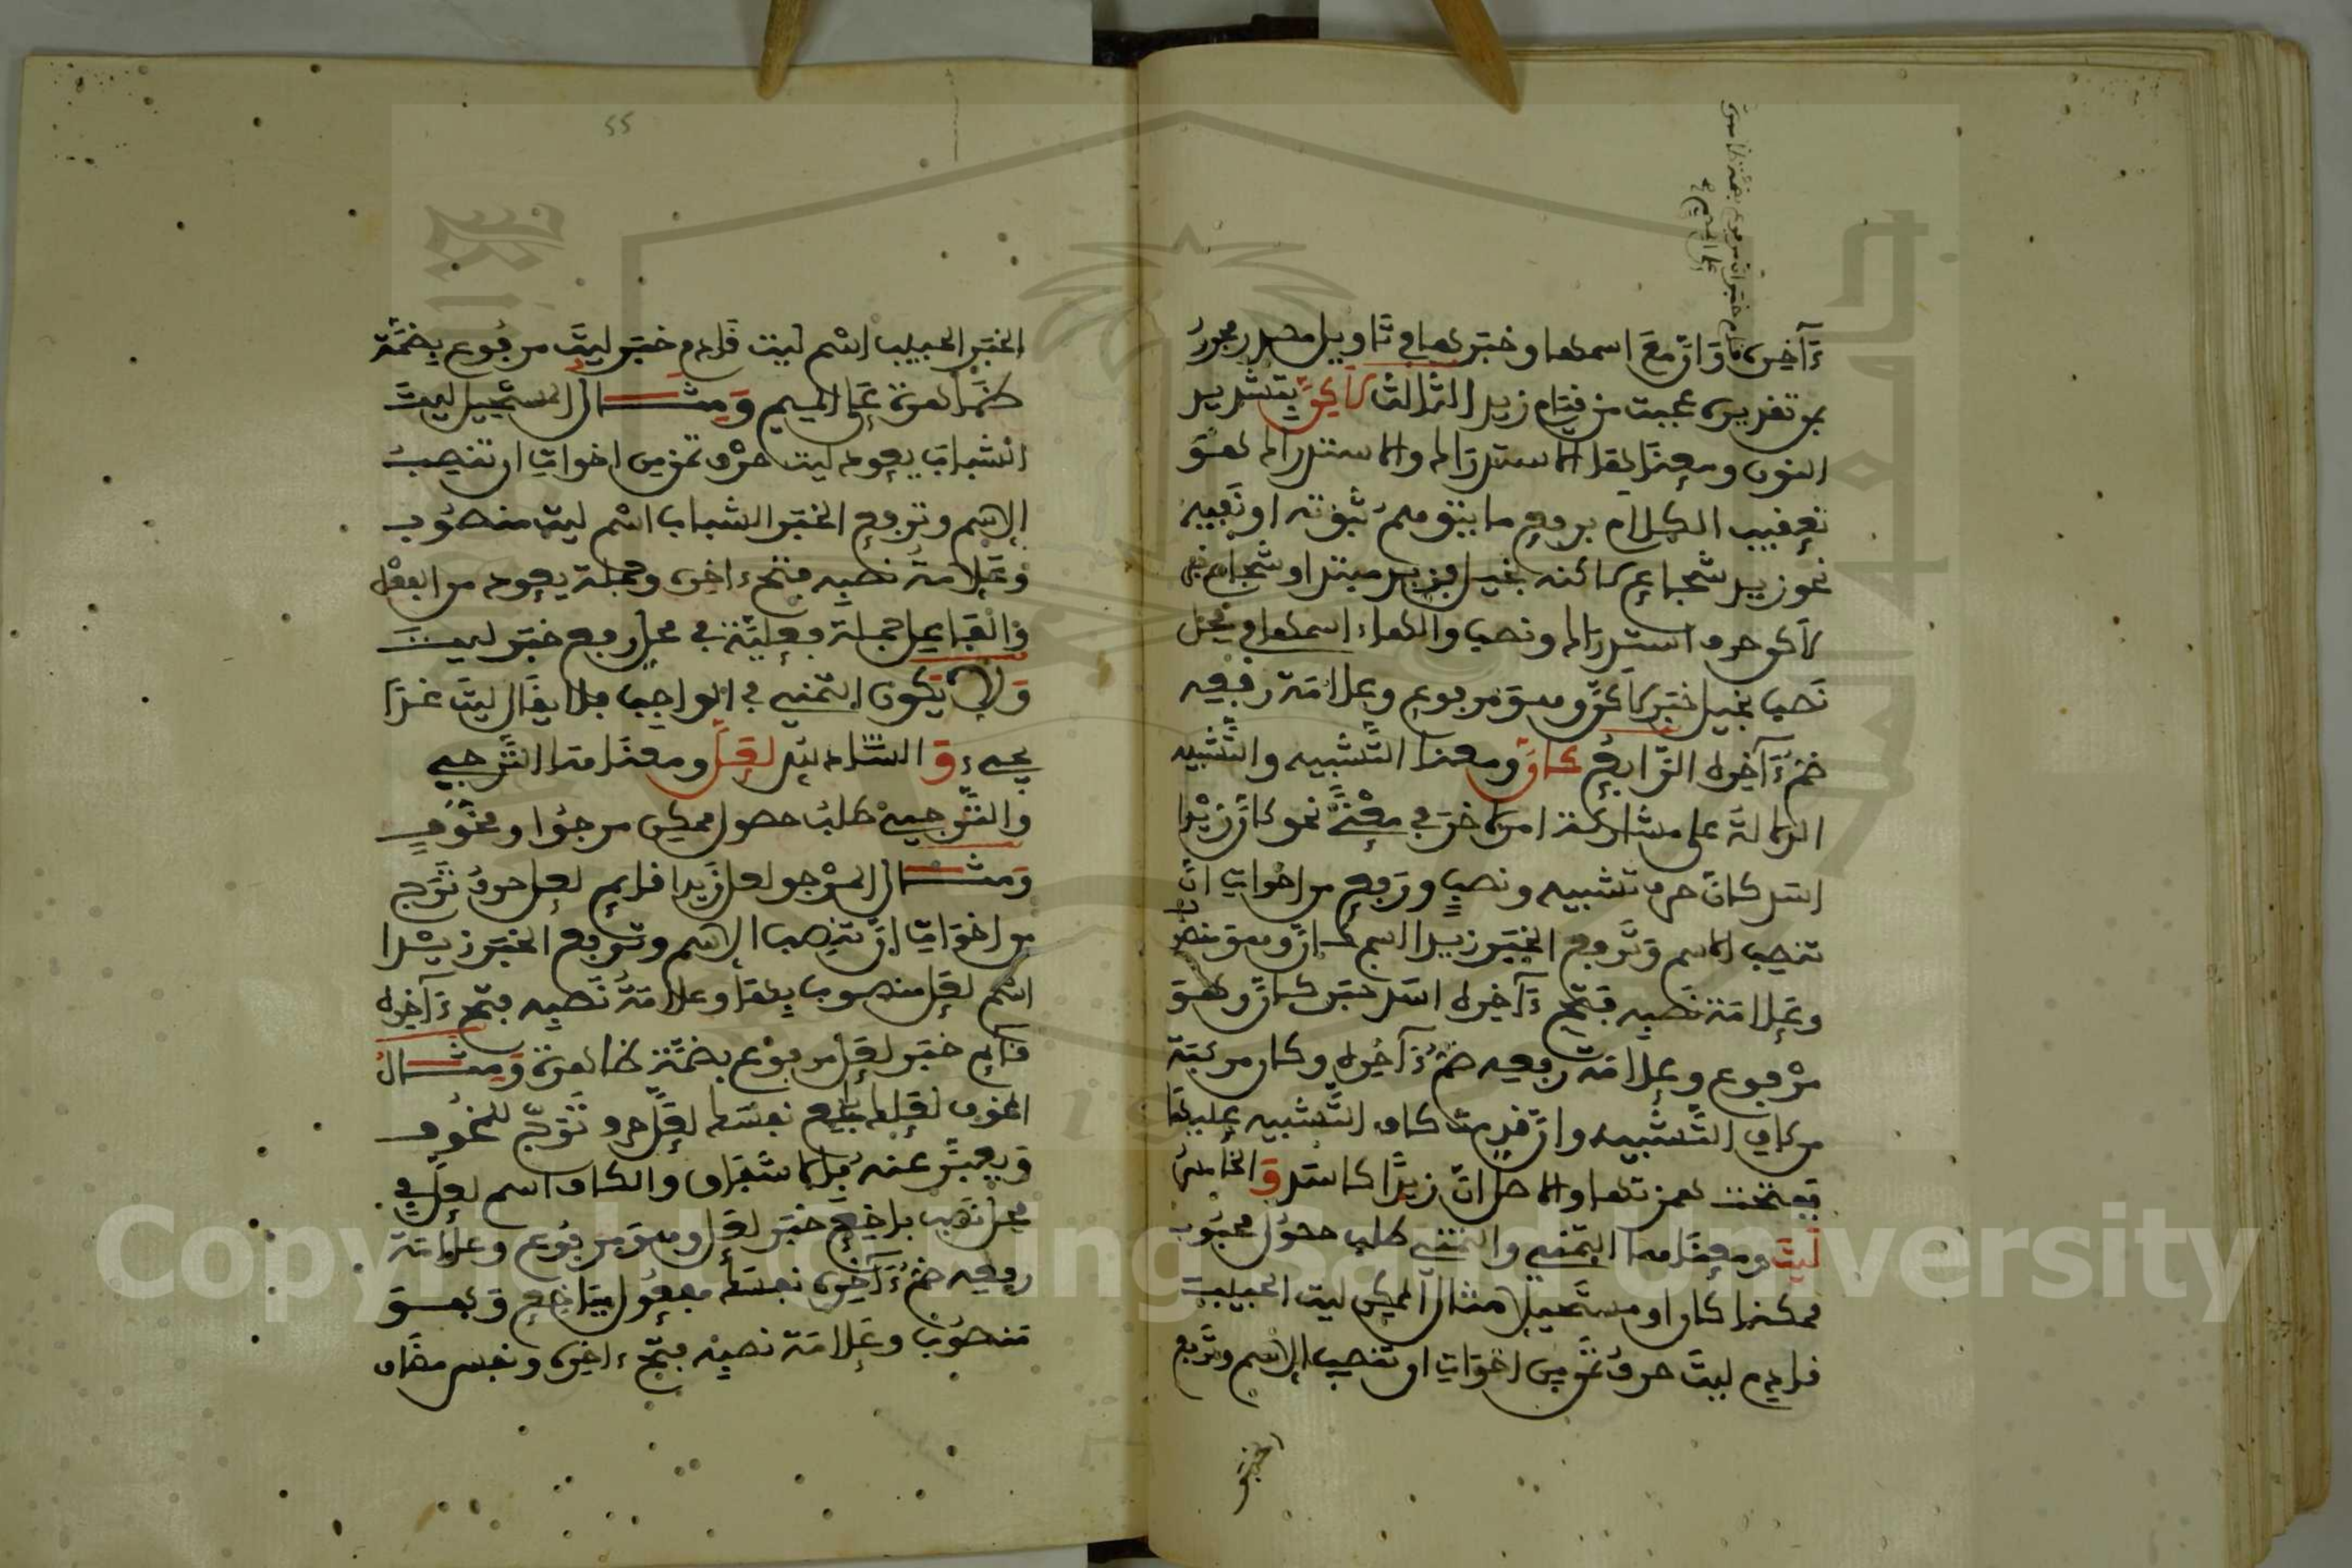 ءاخره وان مع اسمها وخبرها في تاويل مصدر مجرور
بمن تقديره عجبت من قيام زيد الثالث لاكن بتشديد
النون ومعناها الاستدراك والاستدراك هو
تعقيب الكلام برفع ما يتوهم ثبوته او نفيه
نحو زيد شجاع لاكنه بخيل فزيد مبتدا وشجاع خبر
لاكن حرف استدراك ونصب والهاء اسمها في محل
نصب بخيل خبر لاكن وهو مرفوع وعلامة رفعه
ضم ءاخره الرابع كان ومعناها التشبيه والتشبيه
الدلالة على مشاركة امر لاخر في معنى نحو كان زيدا
اسد كان حرف تشبيه ونصب ورفع من اخوات ان
تنصب الاسم وترفع الخبر زيدا اسم كان وهو منصوب
وعلامة نصبه فتح ءاخره اسد خبر كان وهو
مرفوع وعلامة رفعه ضم ءاخره وكان مركبة
من كاف التشبيه وان قدمت كاف التشبيه عليها
ففتحت همزتها والاصل ان زيدا كاسد والخامس
ليت ومعناها التمني والتمني طلب حصول محبوب
ممكنا كان او مستحيلا مثال الممكن ليت الحبيب
قادم ليت حرف تمن من اخوات ان تنصب الاسم وترفع
الخبر
قائم خبر ان مرفوع بضمة ظاهرة
على الميم
55
الخبر الحبيب اسم ليت قادم خبر ليت مرفوع بضمة
ظاهرة على الميم ومثال المستحيل ليت
الشباب يعود ليت حرف تمن من اخوات ان تنصب
الاسم وترفع الخبر الشباب اسم ليت منصوب
وعلامة نصبه فتح ءاخره وجملة يعود من الفعل
والفاعل جملة فعلية في محل رفع خبر ليت
ولا يكون التمني في الواجب فلا يقال ليت غدا
يجيء والسادس لعل ومعناها الترجي
والترجي طلب حصول ممكن مرجوا ومخوف
ومثال المرجو لعل زيدا قادم لعل حرف ترج
من اخوات ان تنصب الاسم وترفع الخبر زيدا
اسم لعل منصوب بها وعلامة نصبه فتح ءاخره
قادم خبر لعل مرفوع بضمة ظاهرة ومثال
المخوف لعلك باخع نفسك لعل حرف ترج للمخوف
ويعبر عنه بالاشفاق والكاف اسم لعل في
محل نصب باخع خبر لعل وهو مرفوع وعلامة
رفعه ضم ءاخره نفسك مفعول بباخع وهو
منصوب وعلامة نصبه فتح ءاخره ونفس مضاف
Copyright © King Saud University